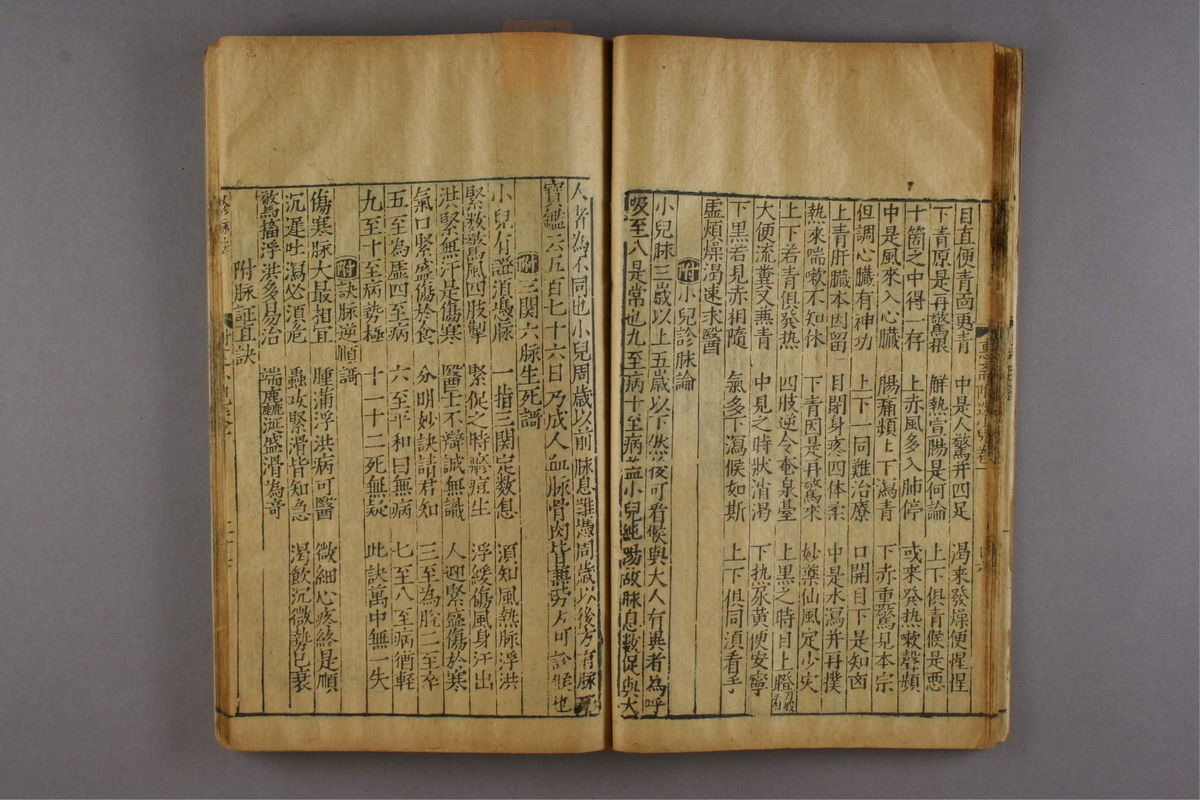 目直便青面更青 中是人驚并四足 渴来發燥便惺惺
下青原是再驚根 鮮熱宣腸是何論 上下俱青候是悪
十箇之中得一存 上赤風多入肺停 或来発熱嗽聲頻
中是風来入心臓 腸痛頻上下瀉青 下赤重驚見本宗
但調心臓有神功 上下一同難治療 口開目下是知凶
上青肝臓本因留 目閉身疼四体柔 中是水瀉并再撲
熱来喘嗽不知休 下青因是再驚来 妙藥仙風定少灾
上下若青俱発熱 四肢逆令奄泉臺 上黒之時目上瞪
大便流糞又兼青 中見之時狀消渴 下熱尿黄便安寧
下黒若見赤相隨 氣多下瀉候如斯 上下俱同湏看手
虚煩燥渴速求醫
附小兒診脉論
小兒脉三歳以上五歳以下然後可看候與大人有異者為呼
吸至八是常也九至病十至病甚小兒純陽故脉息數促與大
人者為不同也小兒周歳以前脉息難憑周歳以後方有脉
寳鑑云五百七十六日乃成人血脉骨肉皆兼勞方可診候也
附三関六脉生死謌
小兒有證湏憑脉 一指三関定数息 湏知風熱脉浮洪
緊数驚風四肢掣 緊促之時疹痘生 浮緩傷風身汗出
洪緊無汗是傷寒 醫工不辯誠無識 人迎緊盛傷於寒
氣口緊盛傷於食 分明妙訣請君知 三至為脫二至卒
五至為虚四至病 六至平和曰無病 七至八至病猶軽
九至十至病勢極 十一十二死無疑 此訣萬中無一失
附訣脉逆順謌
傷寒脉大最相宜 腫滿浮洪病可醫 微細心疼終是順
沉遲吐瀉必湏危 蟲攻緊滑皆知急 渴飲沉微勢已衰
驚搐浮洪多易治 喘麄涎盛滑為竒
附脉証直訣